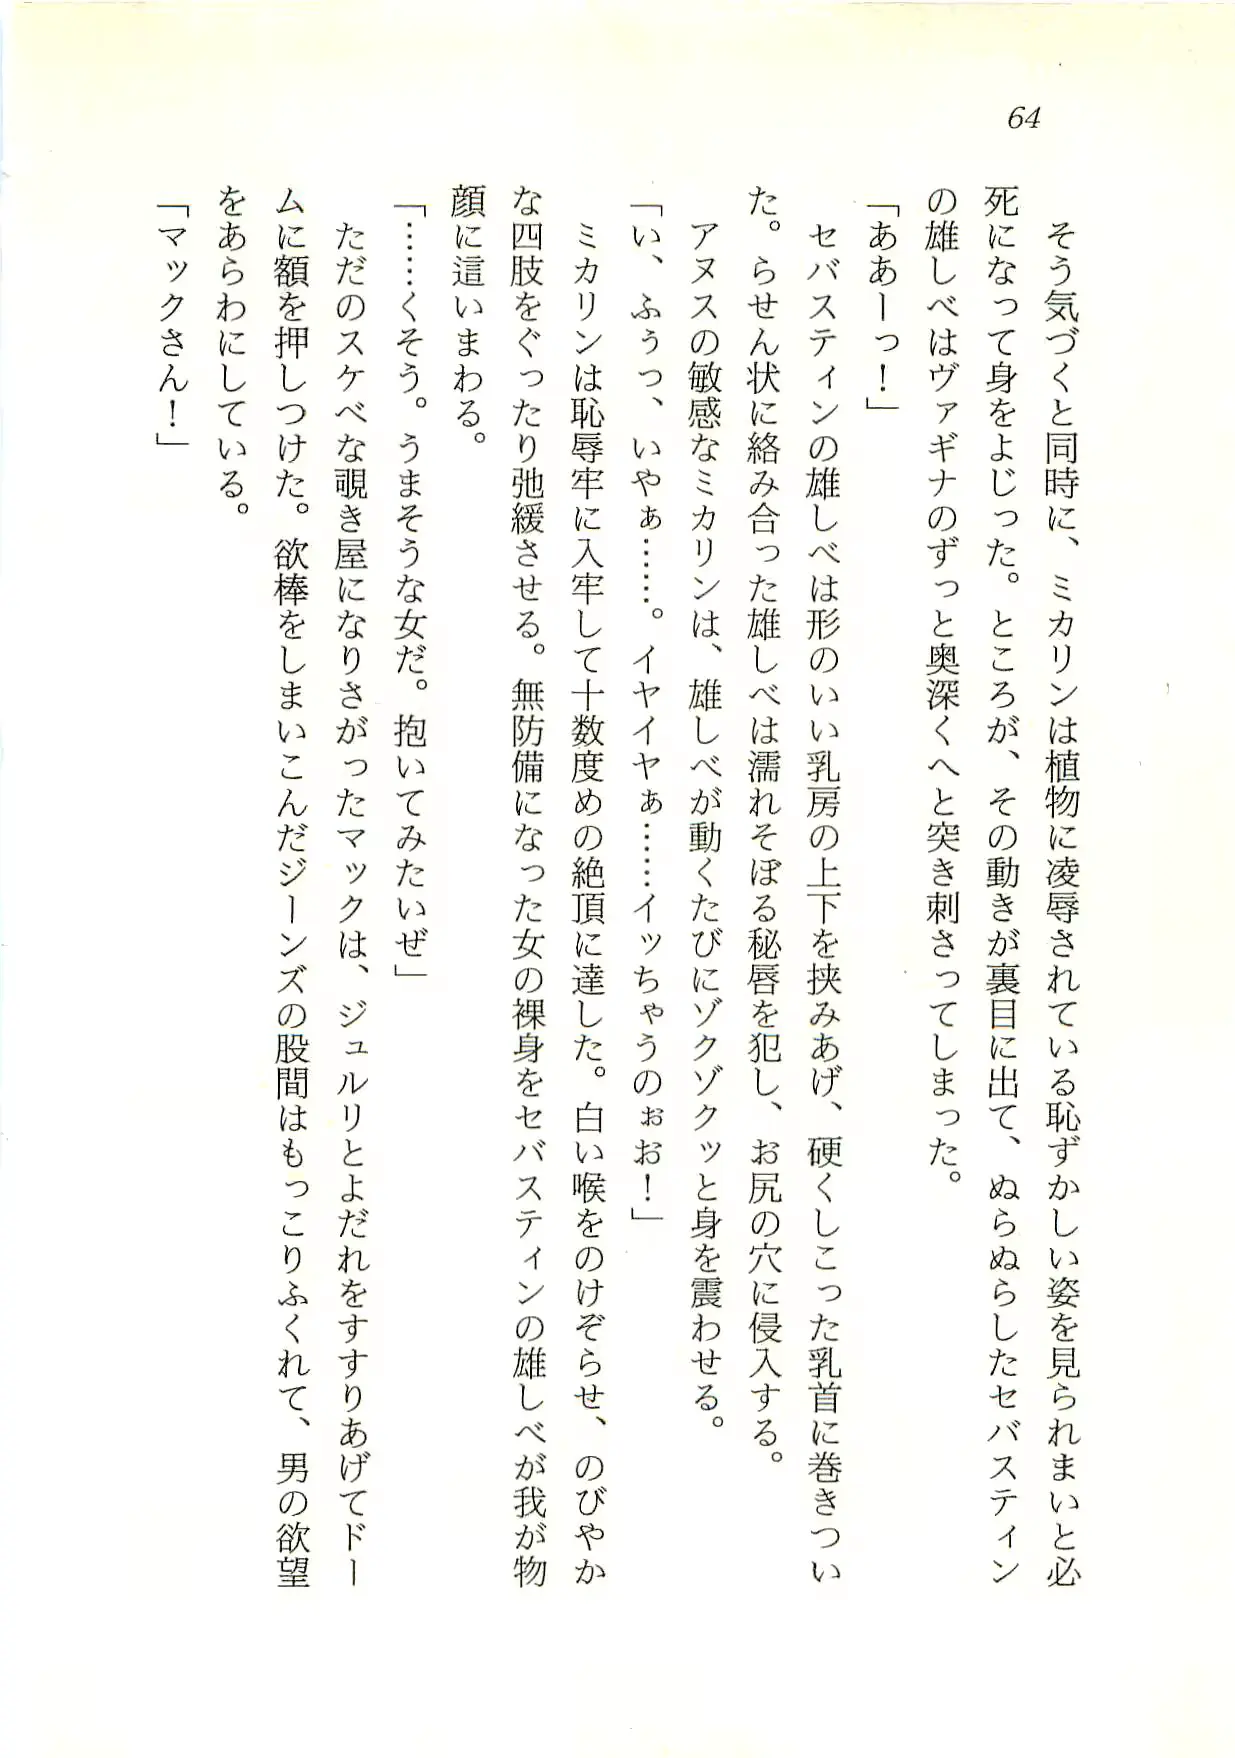 64
　そう気づくと同時に、ミカリンは植物に凌辱されている恥ずかしい姿を見られまいと必
死になって身をよじった。ところが、その動きが裏目に出て、ぬらぬらしたセバスティン
の雄しべはヴァギナのずっと奥深くへと突き刺さってしまった。
「ああーっ！」
　セバスティンの雄しべは形のいい乳房の上下を挟みあげ、硬くしこった乳首に巻きつい
た。らせん状に絡み合った雄しべは濡れそぼる秘唇を犯し、お尻の穴に侵入する。
　アヌスの敏感なミカリンは、雄しべが動くたびにゾクゾクッと身を震わせる。
「い、ふぅっ、いやぁ……。イヤイヤぁ……イッちゃうのぉお！」
　ミカリンは恥辱牢に入牢して十数度めの絶頂に達した。白い喉をのけぞらせ、のびやか
な四肢をぐったり弛緩させる。無防備になった女の裸身をセバスティンの雄しべが我が物
顔に這いまわる。
「……くそう。うまそうな女だ。抱いてみたいぜ」
　ただのスケベな覗き屋になりさがったマックは、ジュルリとよだれをすすりあげてドー
ムに額を押しつけた。欲棒をしまいこんだジーンズの股間はもっこりふくれて、男の欲望
をあらわにしている。
「マックさん！」